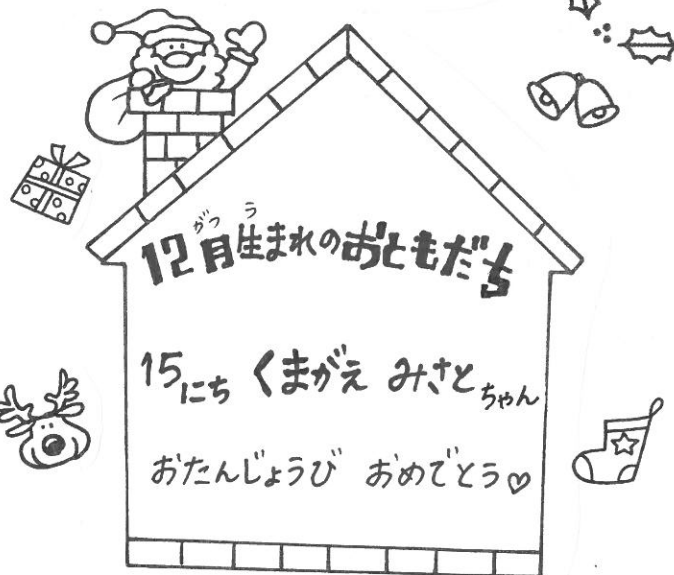 がつ う
12月生まれのおともだち
15にち くまがえ みさとちゃん
おたんじょうび おめでとう♡